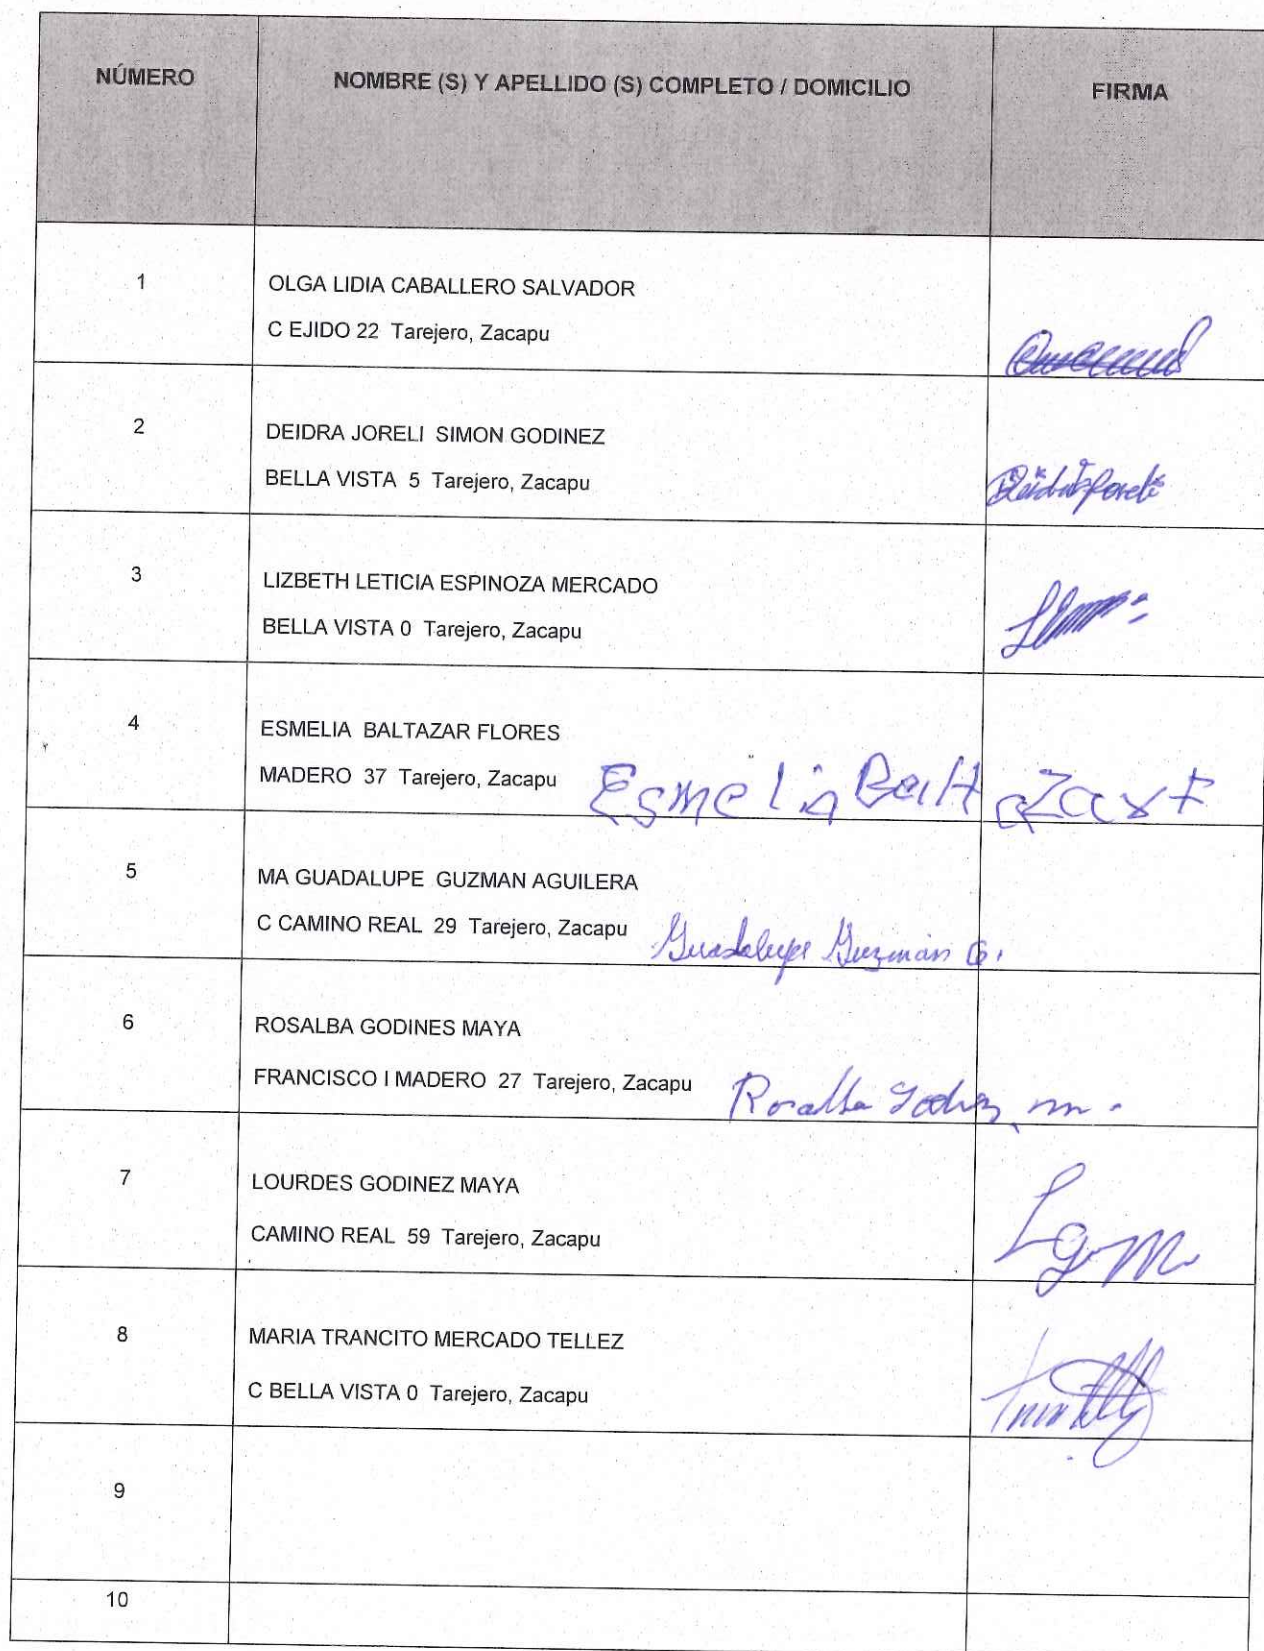 NÚMERO
NOMBRE (S) Y APELLIDO (S) COMPLETO / DOMICILIO
FIRMA
1
OLGA LIDIA CABALLERO SALVADOR
C EJIDO 22 Tarejero, Zacapu
2
DEIDRA JORELI SIMON GODINEZ
BELLA VISTA 5 Tarejero, Zacapu
3
LIZBETH LETICIA ESPINOZA MERCADO
BELLA VISTA 0 Tarejero, Zacapu
4
ESMELIA BALTAZAR FLORES
MADERO 37 Tarejero, Zacapu
Esmelia Baltazar F
5
MA GUADALUPE GUZMAN AGUILERA
C CAMINO REAL 29 Tarejero, Zacapu
Guadalupe Guzmán
6
ROSALBA GODINES MAYA
FRANCISCO I MADERO 27 Tarejero, Zacapu
Rosalba Godinez m.
7
LOURDES GODINEZ MAYA
CAMINO REAL 59 Tarejero, Zacapu
Lgm
8
MARIA TRANCITO MERCADO TELLEZ
C BELLA VISTA 0 Tarejero, Zacapu
9
10